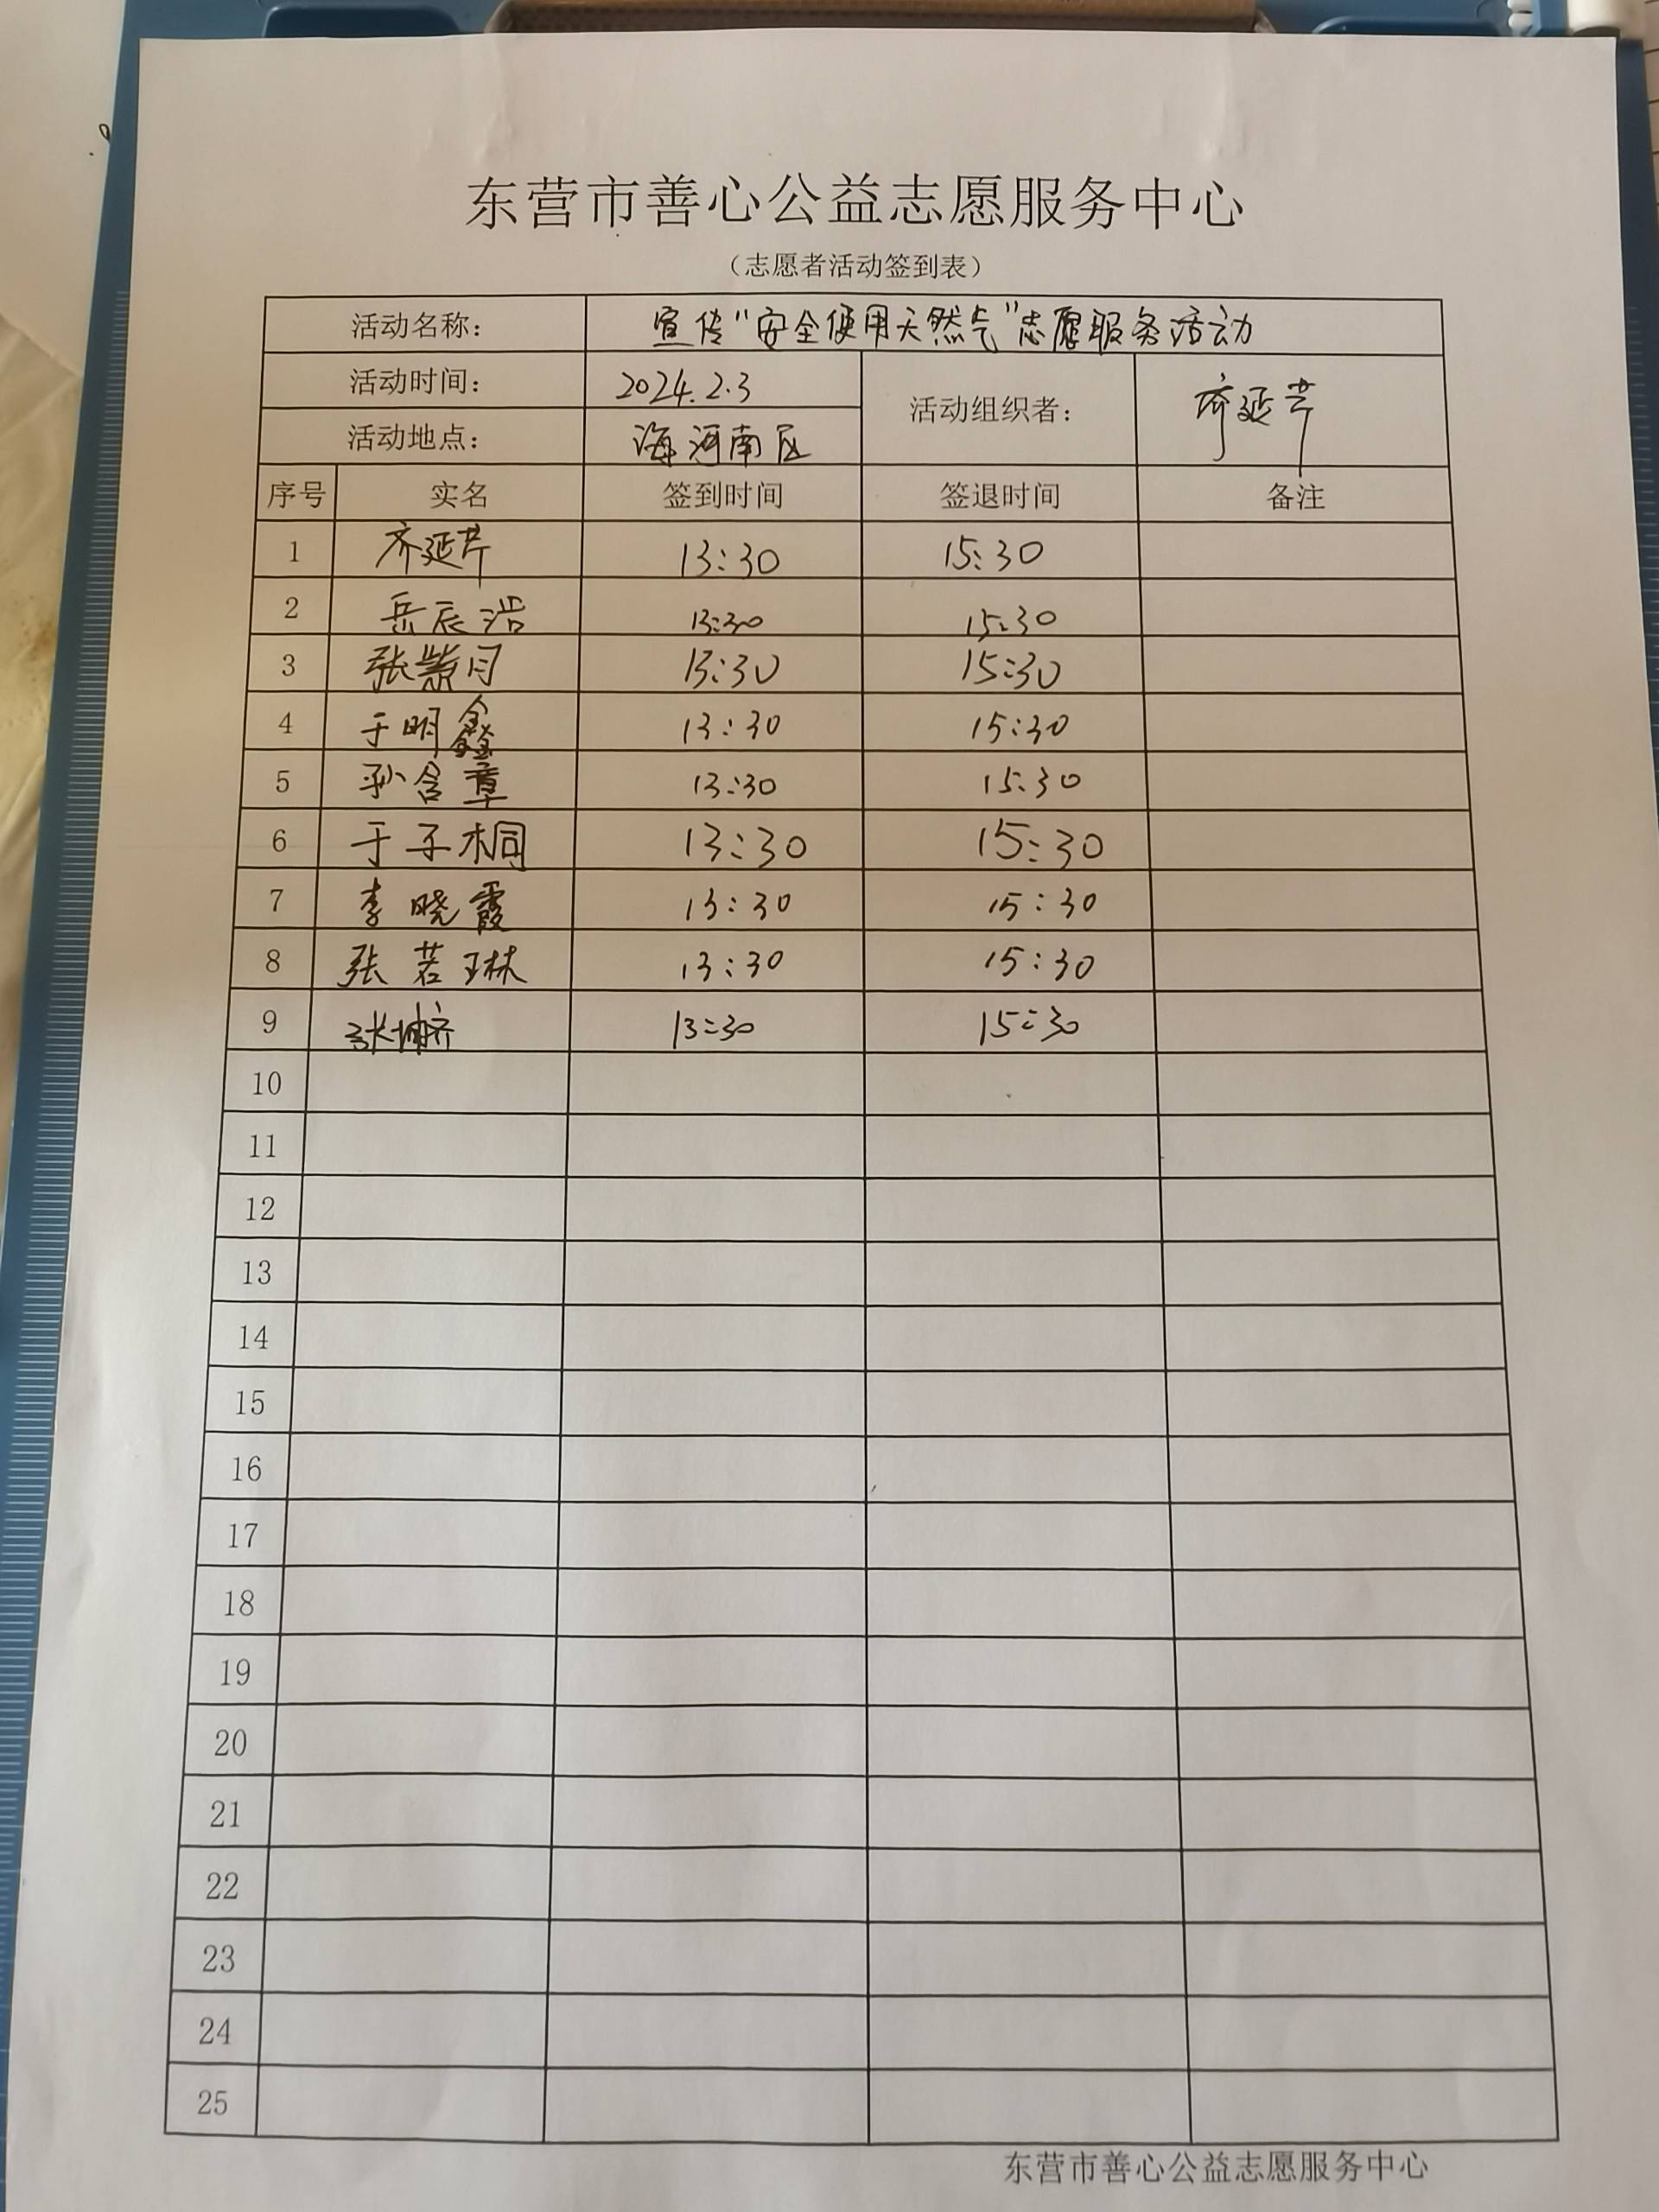 东营市善心公益志愿服务中心
（志愿者活动签到表）
活动名称： 宣传“安全使用天然气”志愿服务活动
活动时间： 2024.2.3 活动组织者： 齐延芹
活动地点： 海河南区
序号 实名 签到时间 签退时间 备注
1 齐延芹 13:30 15:30
2 岳辰浩 13:30 15:30
3 张紫月 13:30 15:30
4 于明鑫 13:30 15:30
5 孙含章 13:30 15:30
6 于子桐 13:30 15:30
7 李晓霞 13:30 15:30
8 张若琳 13:30 15:30
9 张 13:30 15:30
10
11
12
13
14
15
16
17
18
19
20
21
22
23
24
25
东营市善心公益志愿服务中心